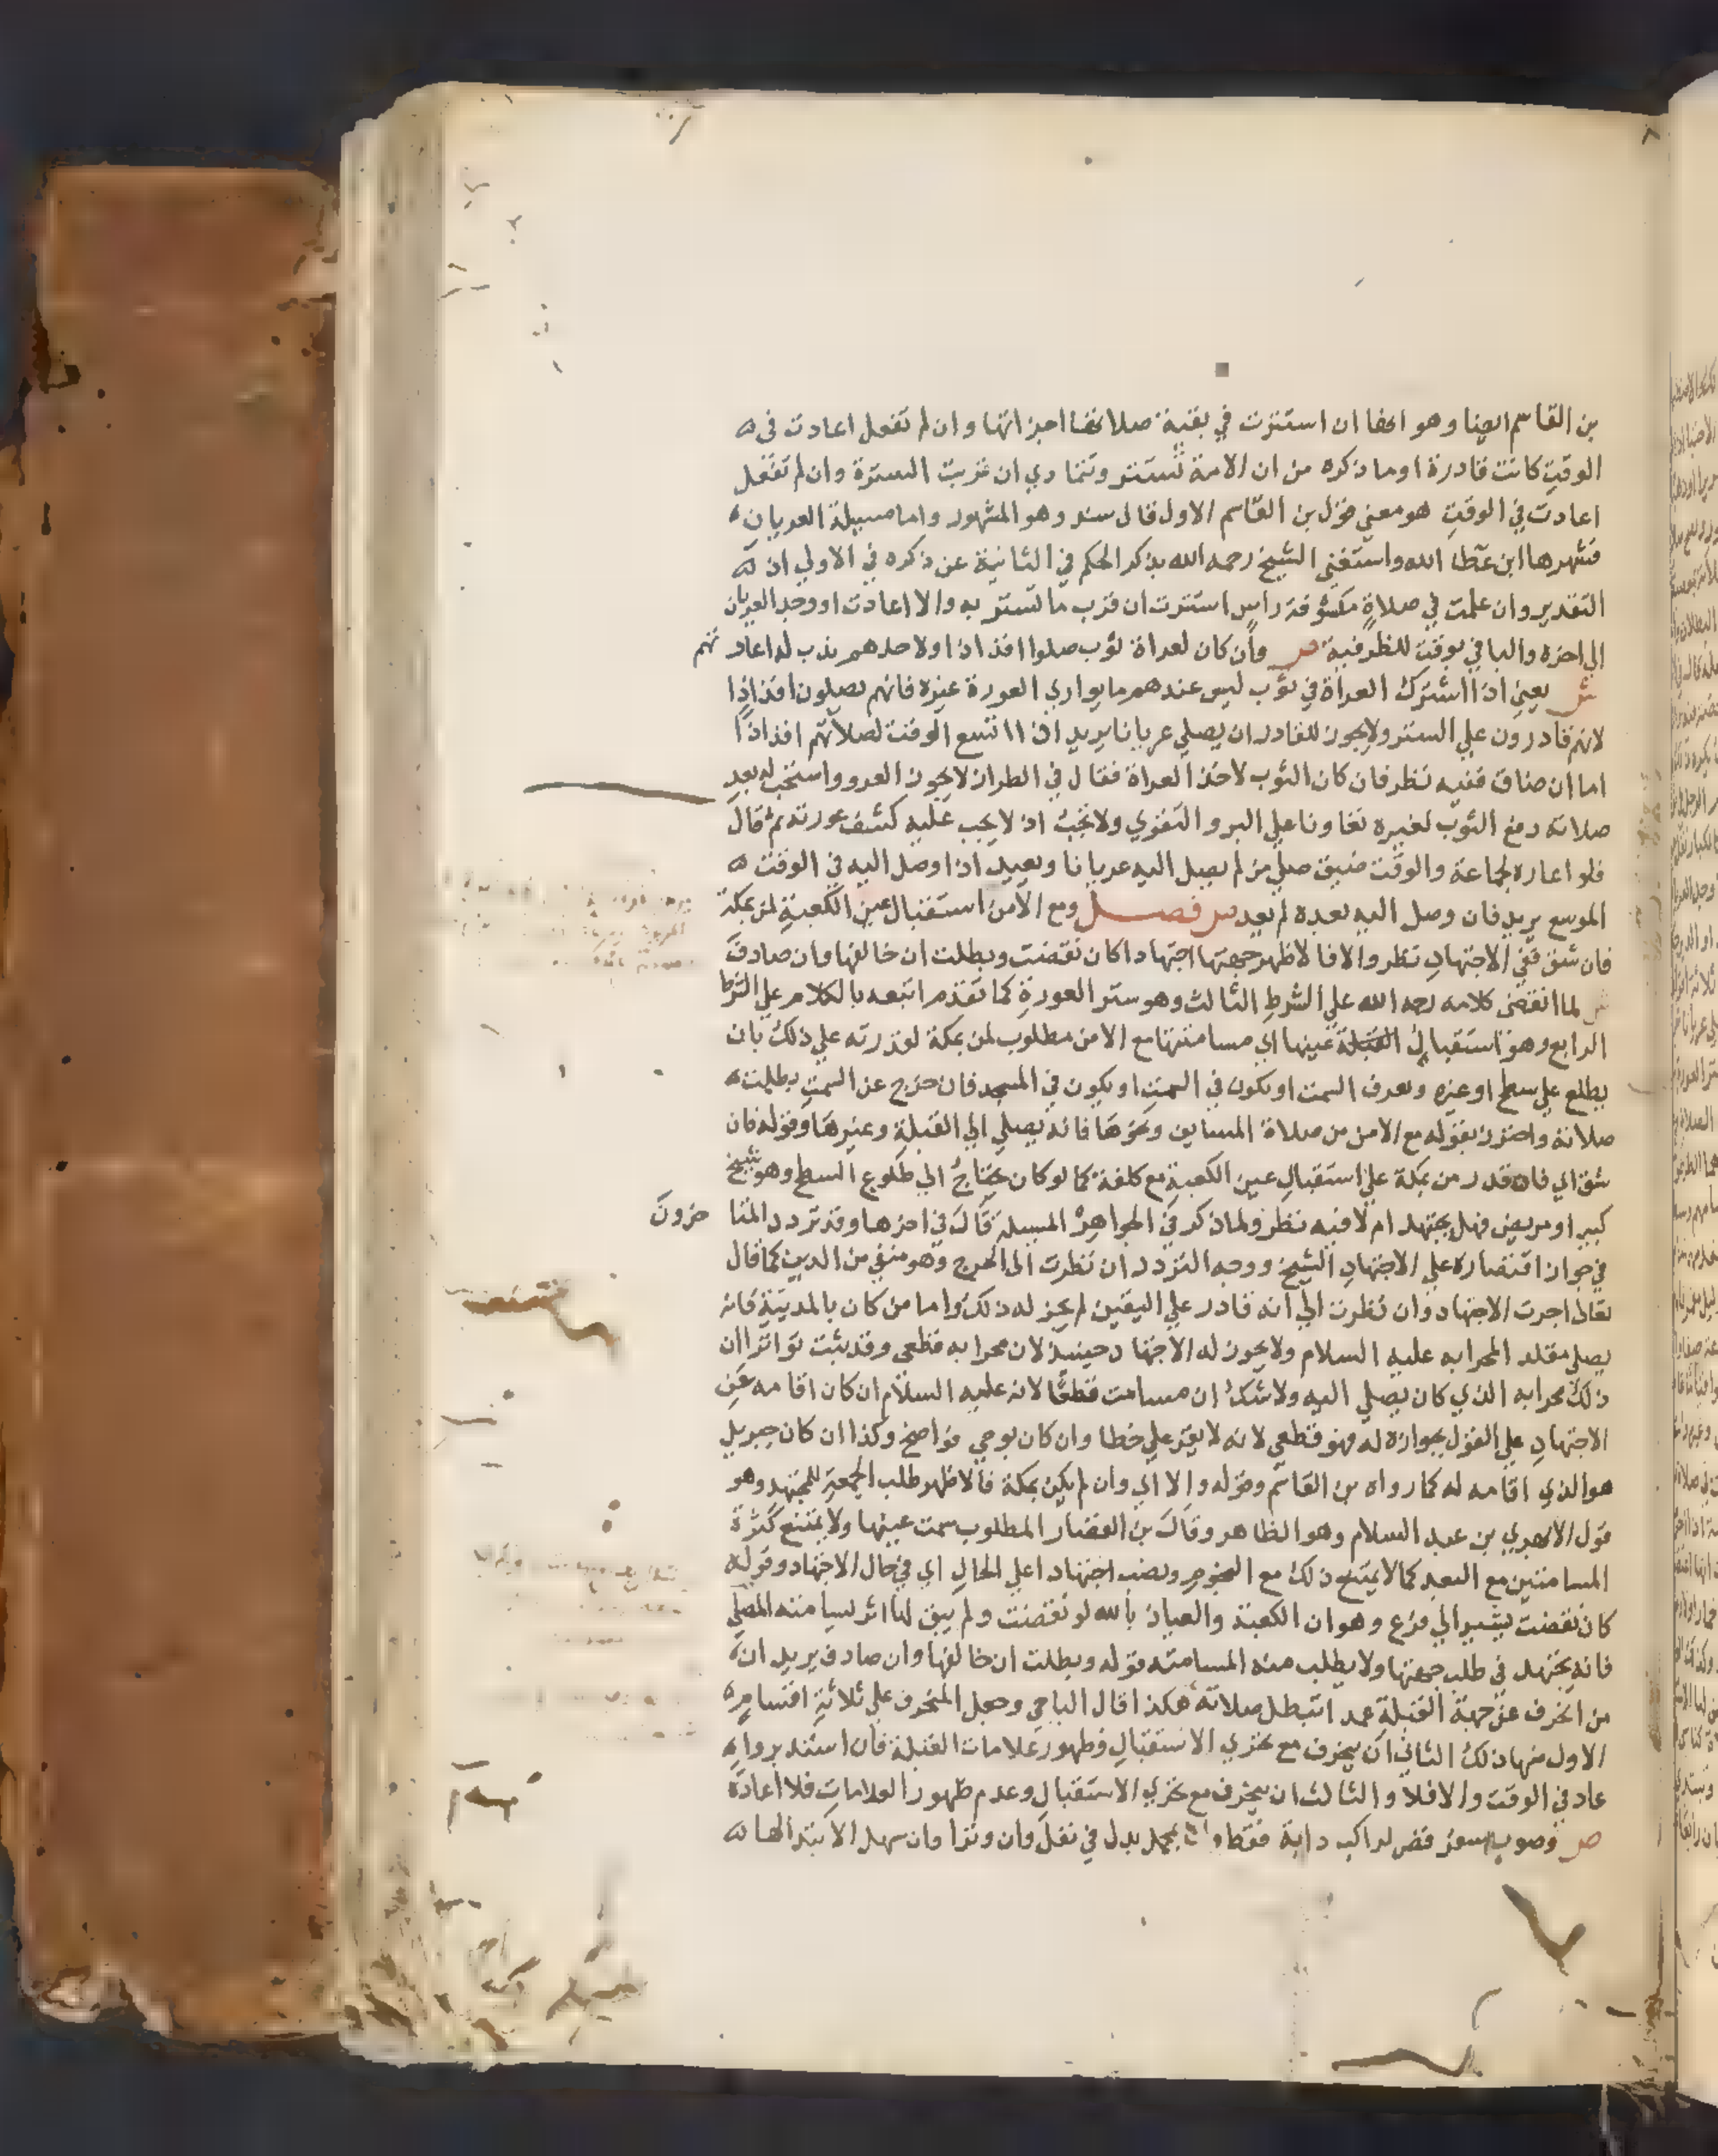 بن القاسم ايضا وهو انها ان استترت في بقية صلاتها اجزاتها وان لم تفعل اعادت في
الوقت كانت قادرة او ما ذكره من ان الامة تستتر وتتمادي ان قربت السترة وان لم تفعل
اعادت في الوقت هو معني قول بن القاسم الاول قال سند وهو المشهور واما مسيلة العريان
فشهرها ابن عطا الله واستغني الشيخ رحمه الله بذكر الحكم في الثانية عن ذكره في الاولي اذ
التقدير وان علمت في صلاة مكشوفة راس استترت ان قرب ما تستتر به والا اعادت او وجد العريان
الي اخره والباقي بوقت للظرفية ص وان كان لعراة ثوب صلوا افذاذا ولاحدهم ندب له اعارتهم
ش يعني اذا اشترك العراة في ثوب ليس عندهم ما يواري العورة غيره فانهم يصلون افذاذا
لانهم قادرون علي الستر ولا يجوز للقادر ان يصلي عريانا يريد اذا اتسع الوقت لصلاتهم افذاذا
اما ان ضاق ففيه نظر فان كان الثوب لاحد العراة فقال في الطراز لا يجوز العرو واستحب له بعد
صلاته دفع الثوب لغيره تعاونا علي البر والتقوي ولا يجب اذ لا يجب عليه كشف عورته ثم قال
فلو اعاره لجماعة والوقت ضيق صلي من لم يصل اليه عريانا ويعيد اذا وصل اليه في الوقت
الموسع يريد فان وصل اليه بعده لم يعد ص فصل ومع الامن استقبال عين الكعبة لمن بمكة
فان شق ففي الاجتهاد نظر والا فالاظهر جهتها اجتهادا كان نقضت وبطلت ان خالفها وان صادف
ش لما انقضي كلامه رحمه الله علي الشرط الثالث وهو ستر العورة كما تقدم اتبعه بالكلام علي الشرط
الرابع وهو استقبال القبلة عينها اي مسامتتها مع الامن مطلوب لمن بمكة لقدرته علي ذلك بان
يطلع علي سطح او غيره ويعرف السمت او يكون في السمت او يكون في المسجد فان خرج عن السمت بطلت
صلاته واحترز بقوله مع الامن من صلاة المسايف ونحوها فانه يصلي الي القبلة وغيرها وقوله فان
شق اي فان قدر من بمكة علي استقبال عين الكعبة مع كلفة كما لو كان يحتاج الي طلوع السطح وهو شيخ
كبير او مريض فهل يجتهد ام لا فيه نظر ولما ذكر في الجواهر المسيلة قال في اخرها وقد تردد المتاخرون
في جواز اقتصاره علي الاجتهاد الشيخ ووجه التردد ان نظرت الي الحرج وهو منفي من الدين كما قال
تعالي اجزت الاجتهاد وان نظرت الي انه قادر علي اليقين لم يجز له ذلك واما من كان بالمدينة فانه
يصلي مقلد المحرابه عليه السلام ولا يجوز له الاجتهاد حينيذ لان محرابه قطعي وقد ثبت تواترا ان
ذلك محرابه الذي كان يصلي اليه ولا شك ان مسامت قطعا لانه عليه السلام ان كان اقامه عن
الاجتهاد علي القول بجوازه له فهو قطعي لانه لا يقر علي خطا وان كان بوحي فواضح وكذا ان كان جبريل
هو الذي اقامه له كما رواه بن القاسم وقوله والا اي وان لم يكن بمكة فالاظهر طلب الجهة للمجتهد وهو
قول الابهري بن عبد السلام وهو الظاهر وقال بن القصار المطلوب سمت عينها ولا يمتنع كثرة
المسامتين مع البعد كما لا يمتنع ذلك مع النجوم ونصب اجتهادا علي الحال اي في حال الاجتهاد وقوله
كان نقضت يشير الي فرع وهو ان الكعبة والعياذ بالله لو نقضت ولم يبق لها اثر ليسامته المصلي
فانه يجتهد في طلب جهتها ولا يطلب منه المسامتة قوله وبطلت ان خالفها وان صادف يريد ان
من انحرف عن جهة القبلة عمدا تبطل صلاته هكذا قال الباجي وجعل المنحرف علي ثلاثة اقسام
الاول منها ذلك الثاني ان ينحرف مع تحري الاستقبال وظهور علامات القبلة فان استدبر وا
عاد في الوقت والا فلا والثالث ان ينحرف مع تحري الاستقبال وعدم ظهور العلامات فلا اعادة
ص وصوب سفر قصر لراكب دابة فقط وان بمحمل بدل في نفل وان وترا وان سهل الابتدا لها